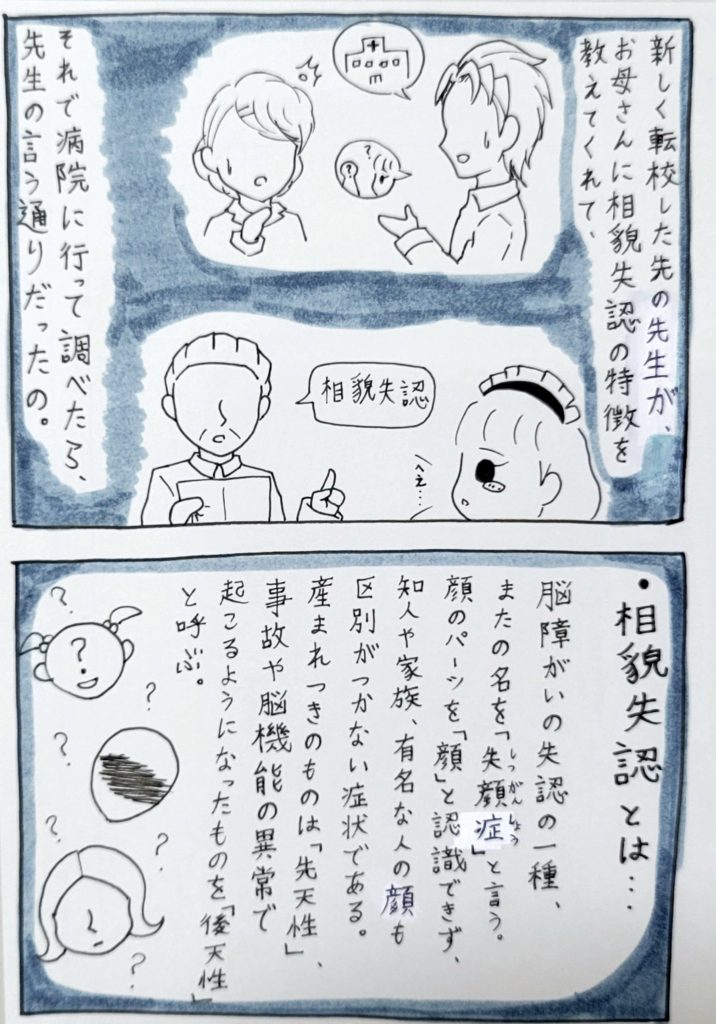 新しく転校した先の先生が、
お母さんに相貌失認の特徴を
教えてくれて、
?
?
それで病院に行って調べたら、
先生の言う通りだったの。
相貌失認
へぇ…
・相貌失認とは…
脳障がいの失認の一種、
またの名を「失顔症」と言う。
しつがんしょう
顔のパーツを「顔」と認識できず、
知人や家族、有名な人の顔も
区別がつかない症状である。
産まれつきのものは「先天性」、
事故や脳機能の異常で
起こるようになったものを「後天性」
と呼ぶ。
?
?
?
?
?
?
?
?